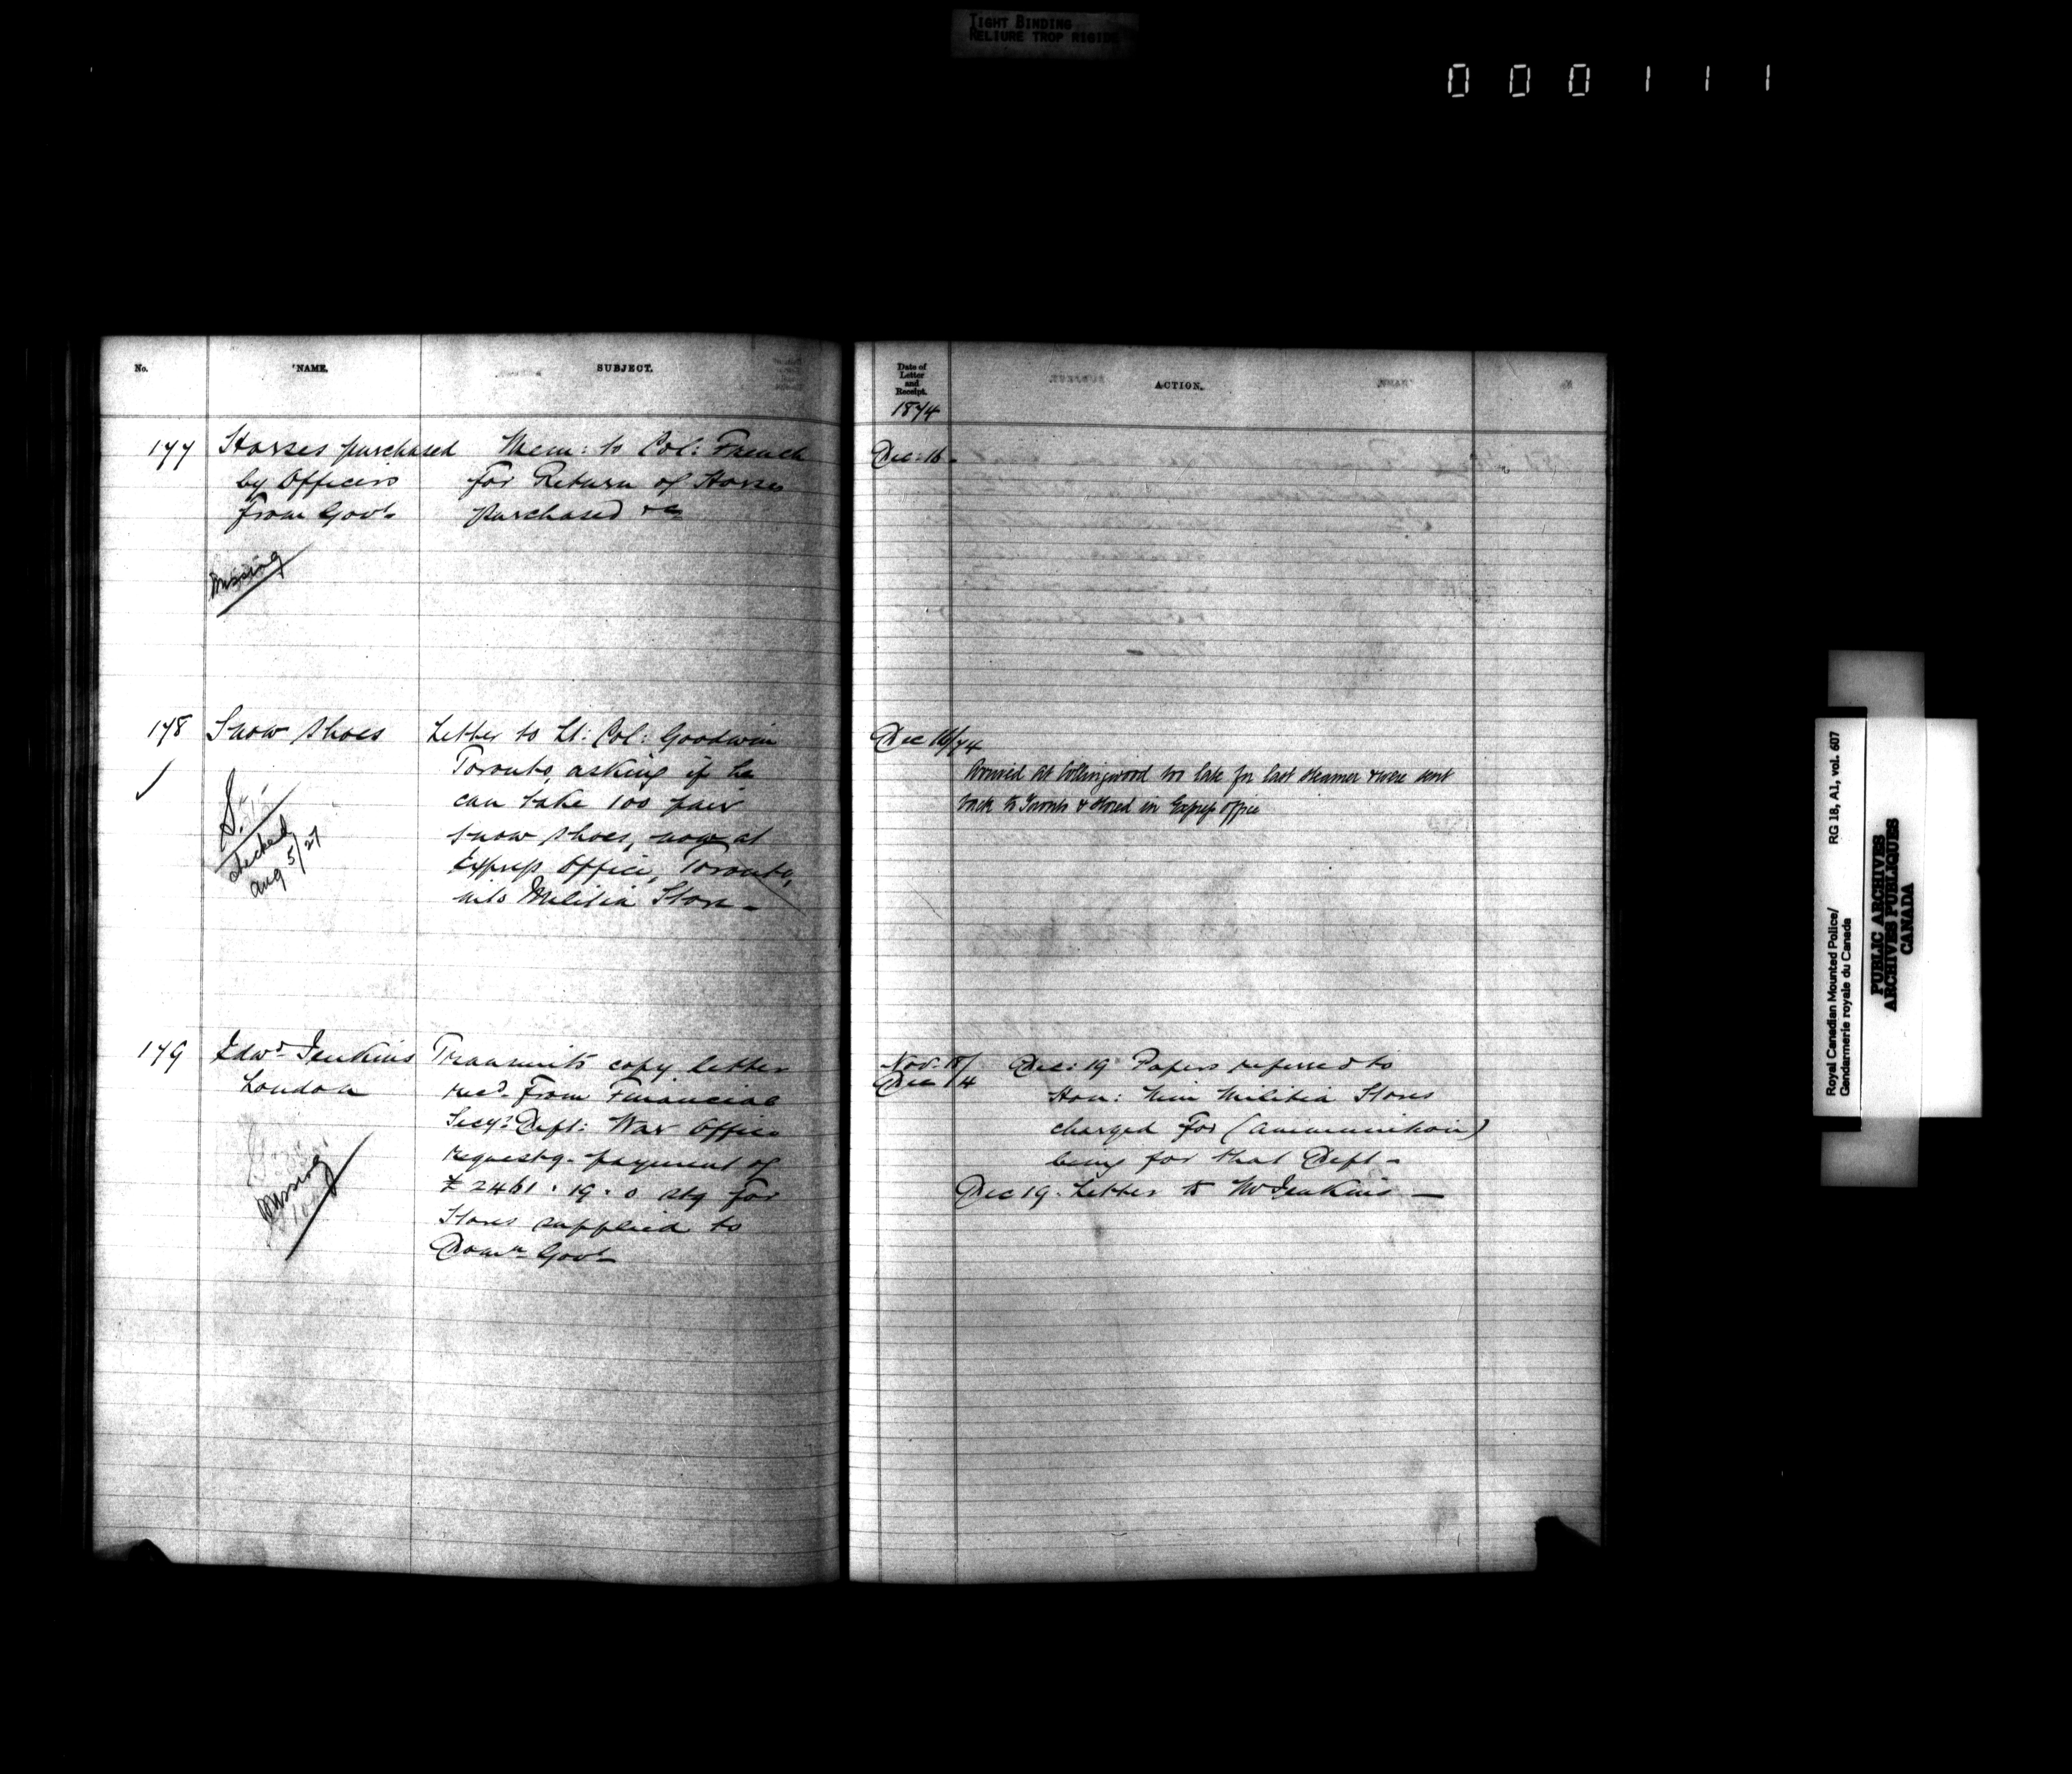 TIGHT BINDING
RELIURE TROP RIGIDE
000111
No.
NAME.
SUBJECT.
177
Horses purchased
by Officers
from Govt
Missing
Mem: to Col: French
for Return of Horses
purchased &c
178
Snow Shoes
S.
checked
Aug 5/27
Letter to Lt: Col: Goodwin
Toronto, asking if he
can take 100 pair
snow shoes, now at
Express Office, Toronto,
into Militia Store -
179
Edwd Jenkins
London
Missing
Transmits copy letter
recd from Financial
Secy's Dept: War Office
requestg. payment of
£2461.19.0 stg for
Stores supplied to
Domn Govt
Date of
Letter
and
Receipt.
1874
ACTION.
Dec: 16.
Dec 16/74
Arrived at Collingwood too late for last steamer & were sent
back to Toronto & stored in Express Office
Nov. 18/
Dec 14
Dec: 19 Papers referred to
Hon: Min Militia Stores
charged for (ammunition)
being for that Dept -
Dec 19. Letter to Mr Jenkins -
Royal Canadian Mounted Police/
Gendarmerie royale du Canada
RG 18, A1, vol. 607
PUBLIC ARCHIVES
ARCHIVES PUBLIQUES
CANADA